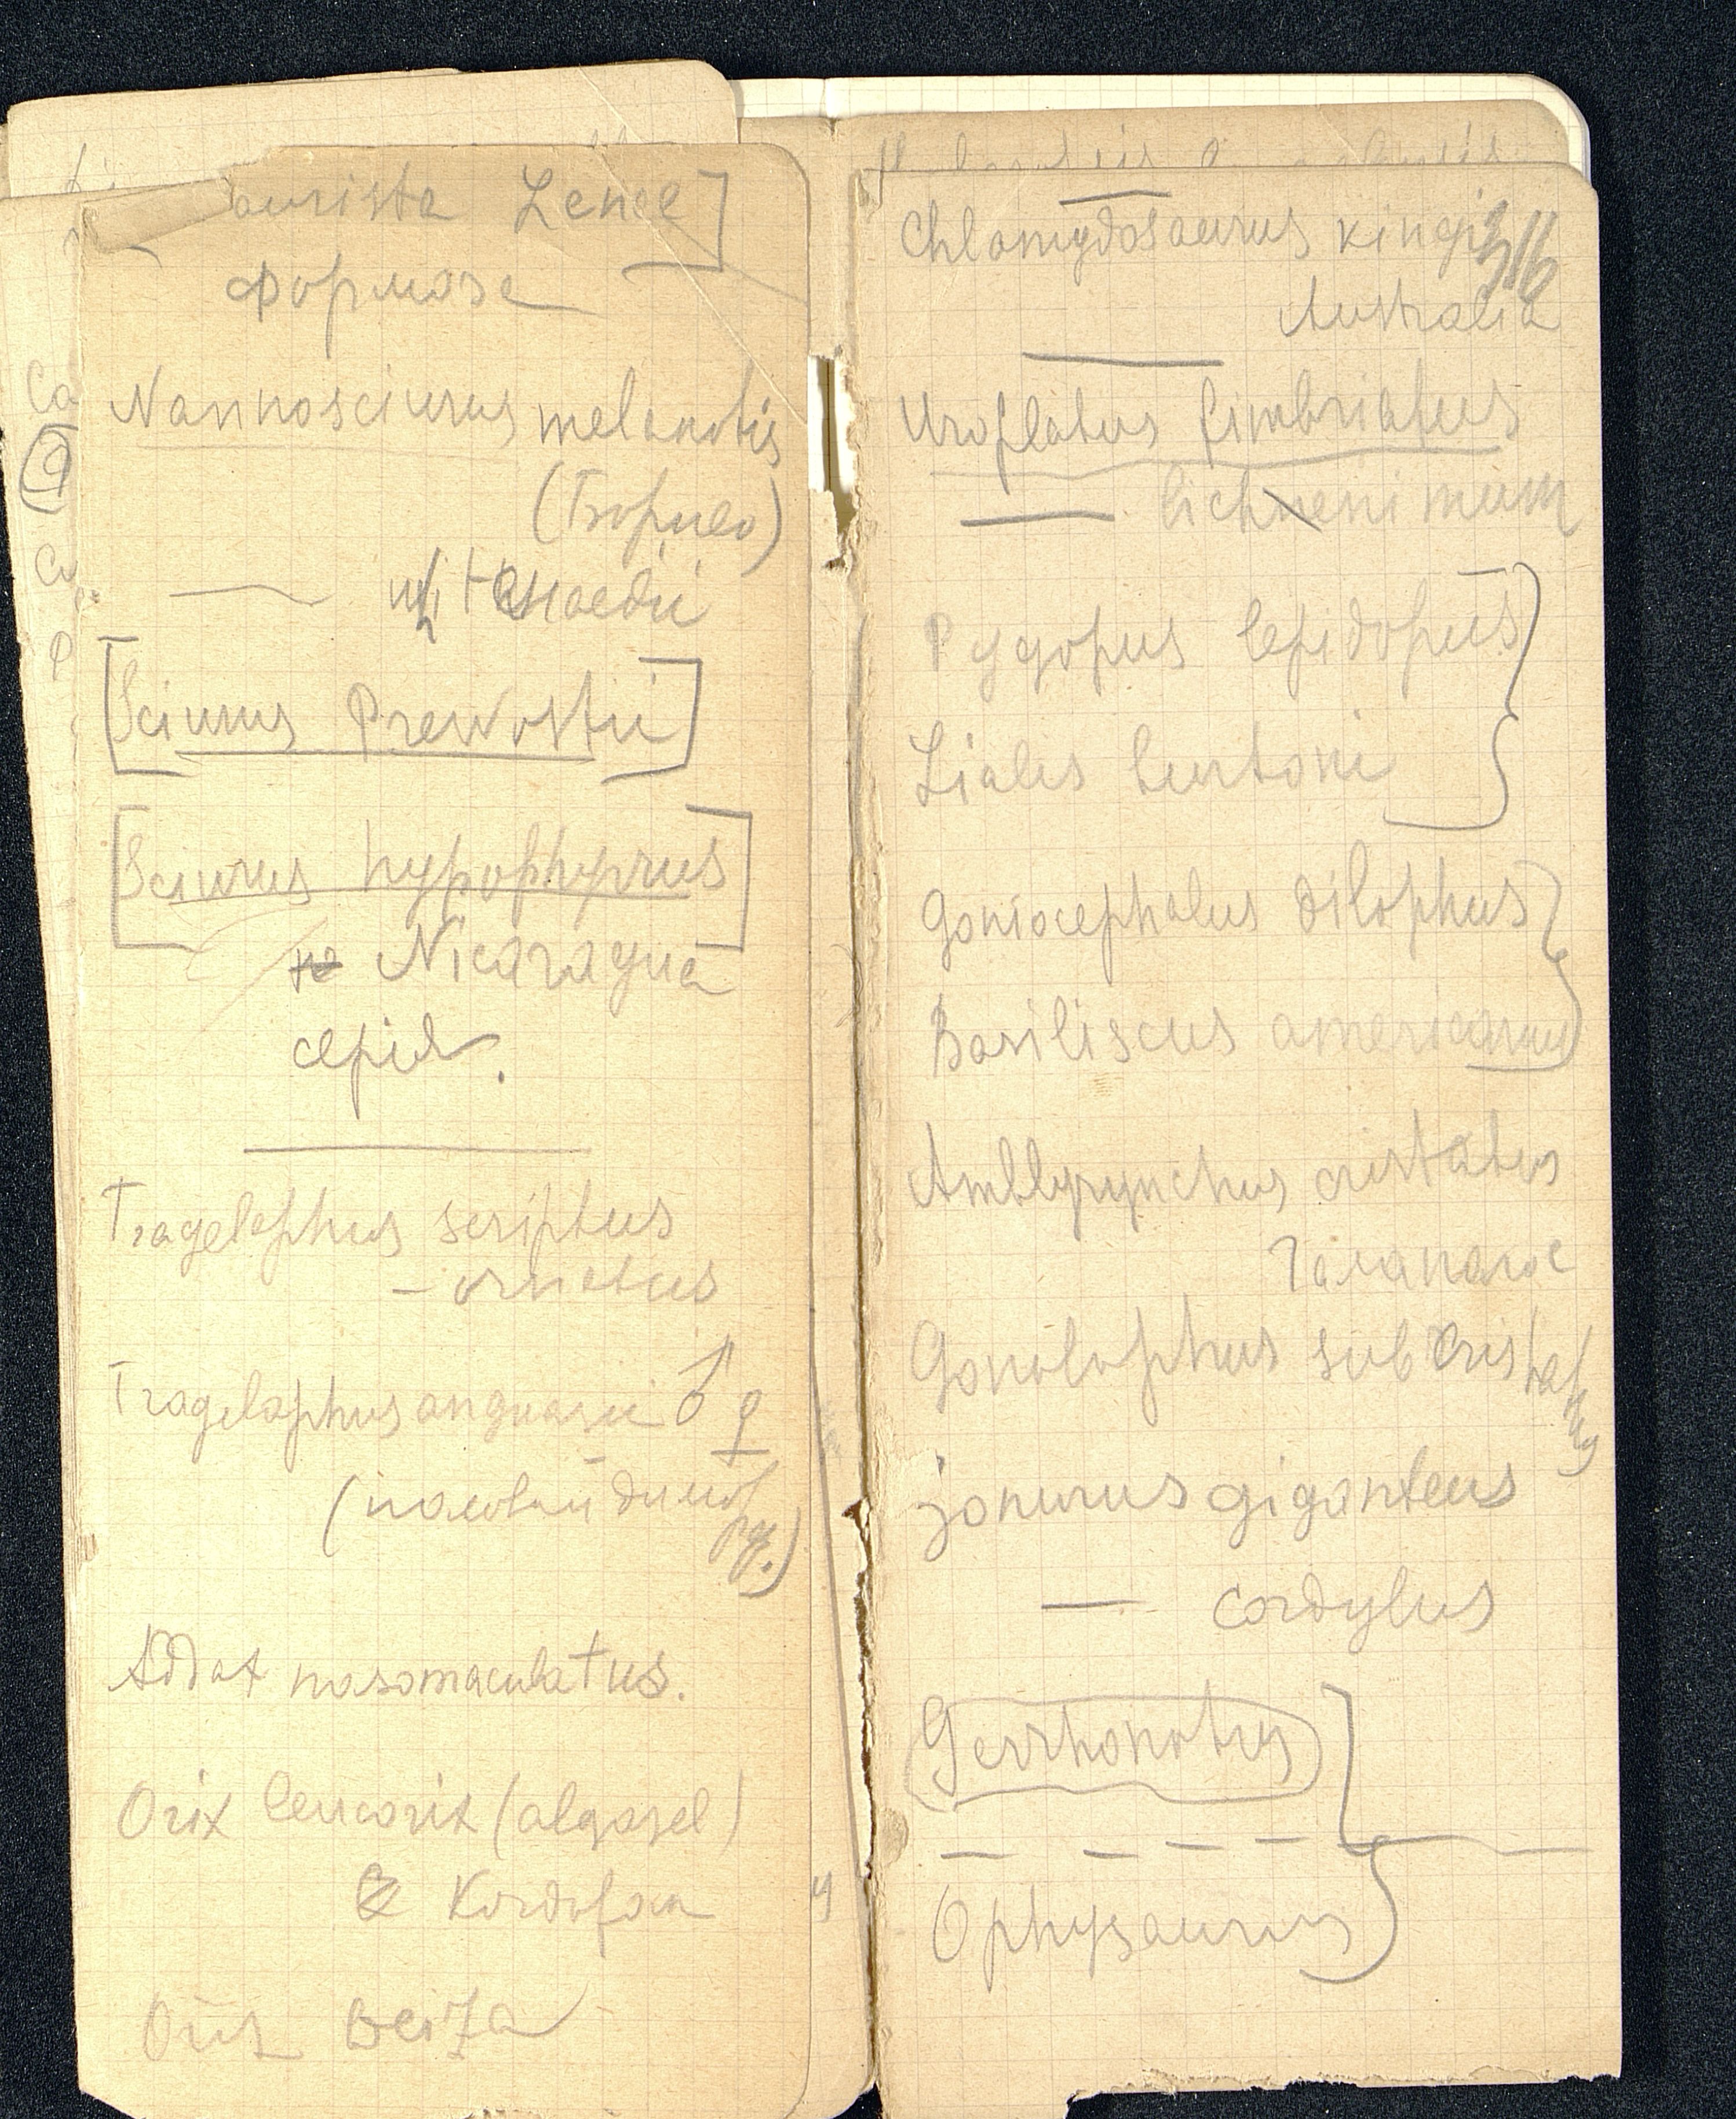 aurista Lenee]
Формоза
Nannosciurus melanotis
(Борнео)
[Sciurus Prevostii]
[Sciurus hypophyrus]
Nicaragua
серия.
Tragelaphus scriptus
— ornatus
Tragelaphus angasii ♂ ♀
(половой диморф
Addax nasomaculatus.
Orix leucorix (algazel)
Kordofan
Orix beiza
Chlamydosaurus kingi
316
Australia
Uroplatus fimbriatus
—
Pygopus lepidopus
Lialis burtoni
Goniocephalus dilophus
Basiliscus americanus
Amblyrynchus cristatus
Галапагос
Gonolophus subcristatus
Zonurus giganteus
— cordylus
Gerrhonotus
Ophysaurus